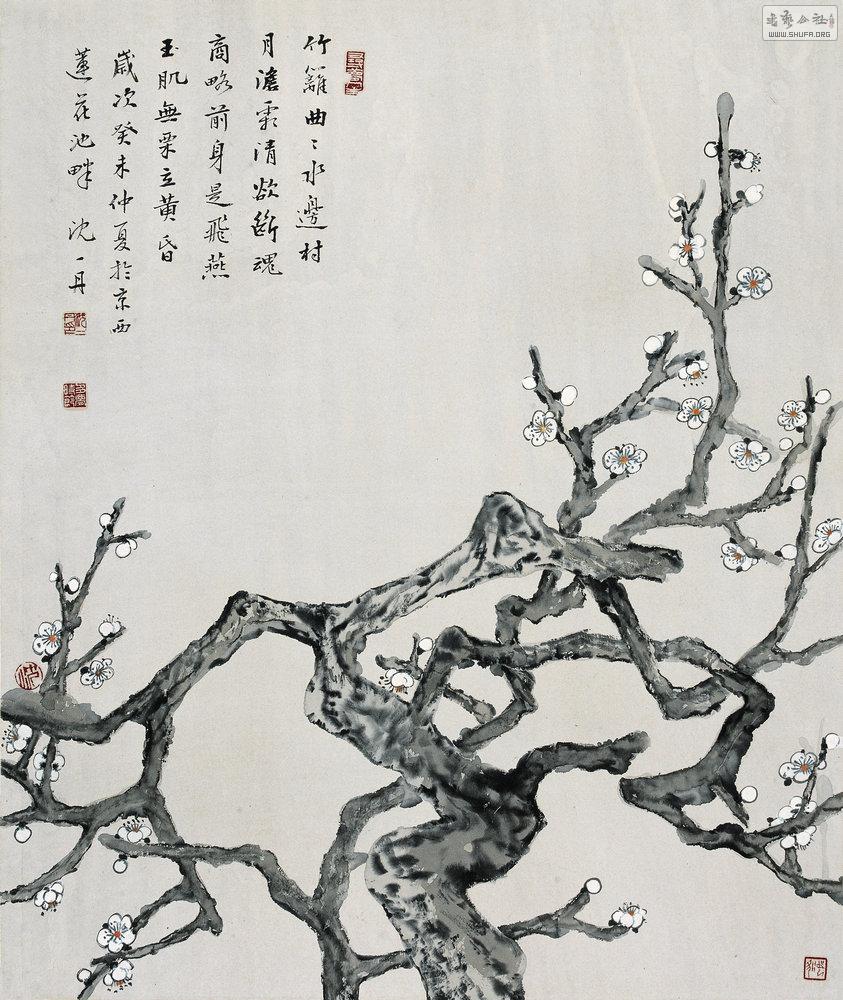 竹籬曲〻水邊村
月澹霜清欲斷魂
商略前身是飛燕
玉肌無粟立黃昏
歲次癸未仲夏於京西
蓮花池畔 沈一丹
书艺公社
WWW.SHUFA.ORG